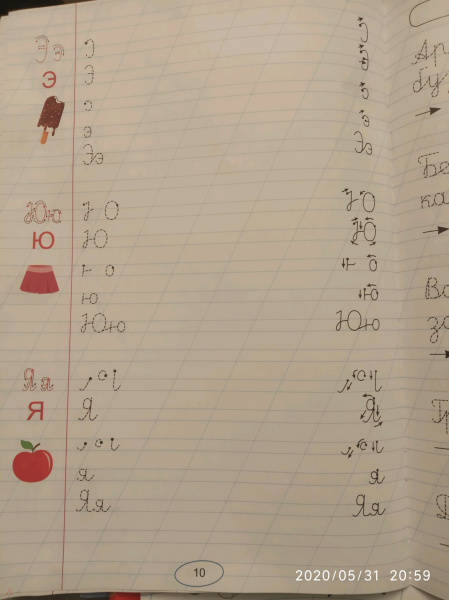 Ээ Э Э
Э Э Э
э э
э э
Ээ Ээ
Юю Ю Ю
Ю Ю Ю
ю ю
ю ю
Юю Юю
Яя Я Я
Я Я Я
я я
я я
Яя Яя
Ар
бу
Бе
ка
Во
зо
Гр
10
2020/05/31 20:59